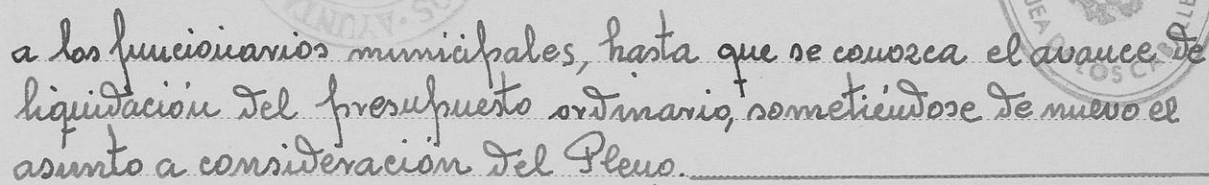 AYUNTA
DEA D LOS CABALLE
a los funcionarios municipales, hasta que se conozca el avance de
liquidación del presupuesto ordinario, sometiéndose de nuevo el
asunto a consideración del Pleno.